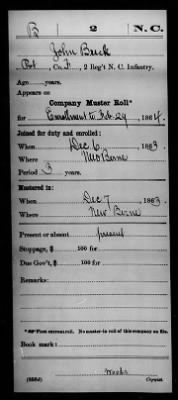 B 2 N.C.
John Buck
Pvt, Co. F, 2 Reg't N. C. Infantry.
Age years.
Appears on
Company Muster Roll*
for Enrollment to Feb 29, 1864.
Joined for duty and enrolled:
When Dec 6, 1863
Where New Berne
Period 3 years
Mustered in:
When Dec 7, 1863
Where New Berne
Present or absent present
Stoppage, $ 100 for
Due Gov't, $ 100 for
Remarks:
*First muster roll. No muster-in roll of this company on file.
Book mark:
Copyist.